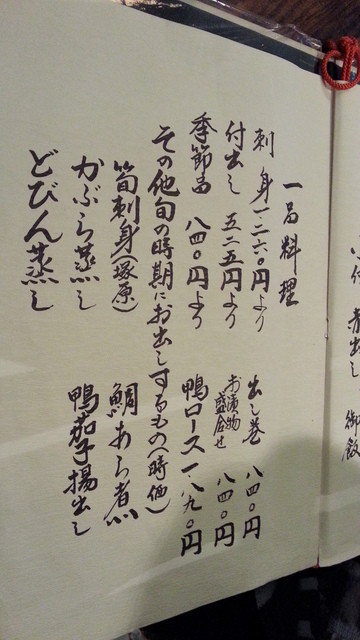 一品料理
刺身 一.二六〇円より
出し巻 八四〇円
付出し 五二五円より
お漬物盛合せ 八四〇円
季節魚 八四〇円より
鴨ロース 一.八九〇円
その他旬の時期にお出しするもの(時価)
筍刺身(塚原)
鯛あら煮
かぶら蒸し
鴨茄子揚出し
どびん蒸し
赤出し 御飯